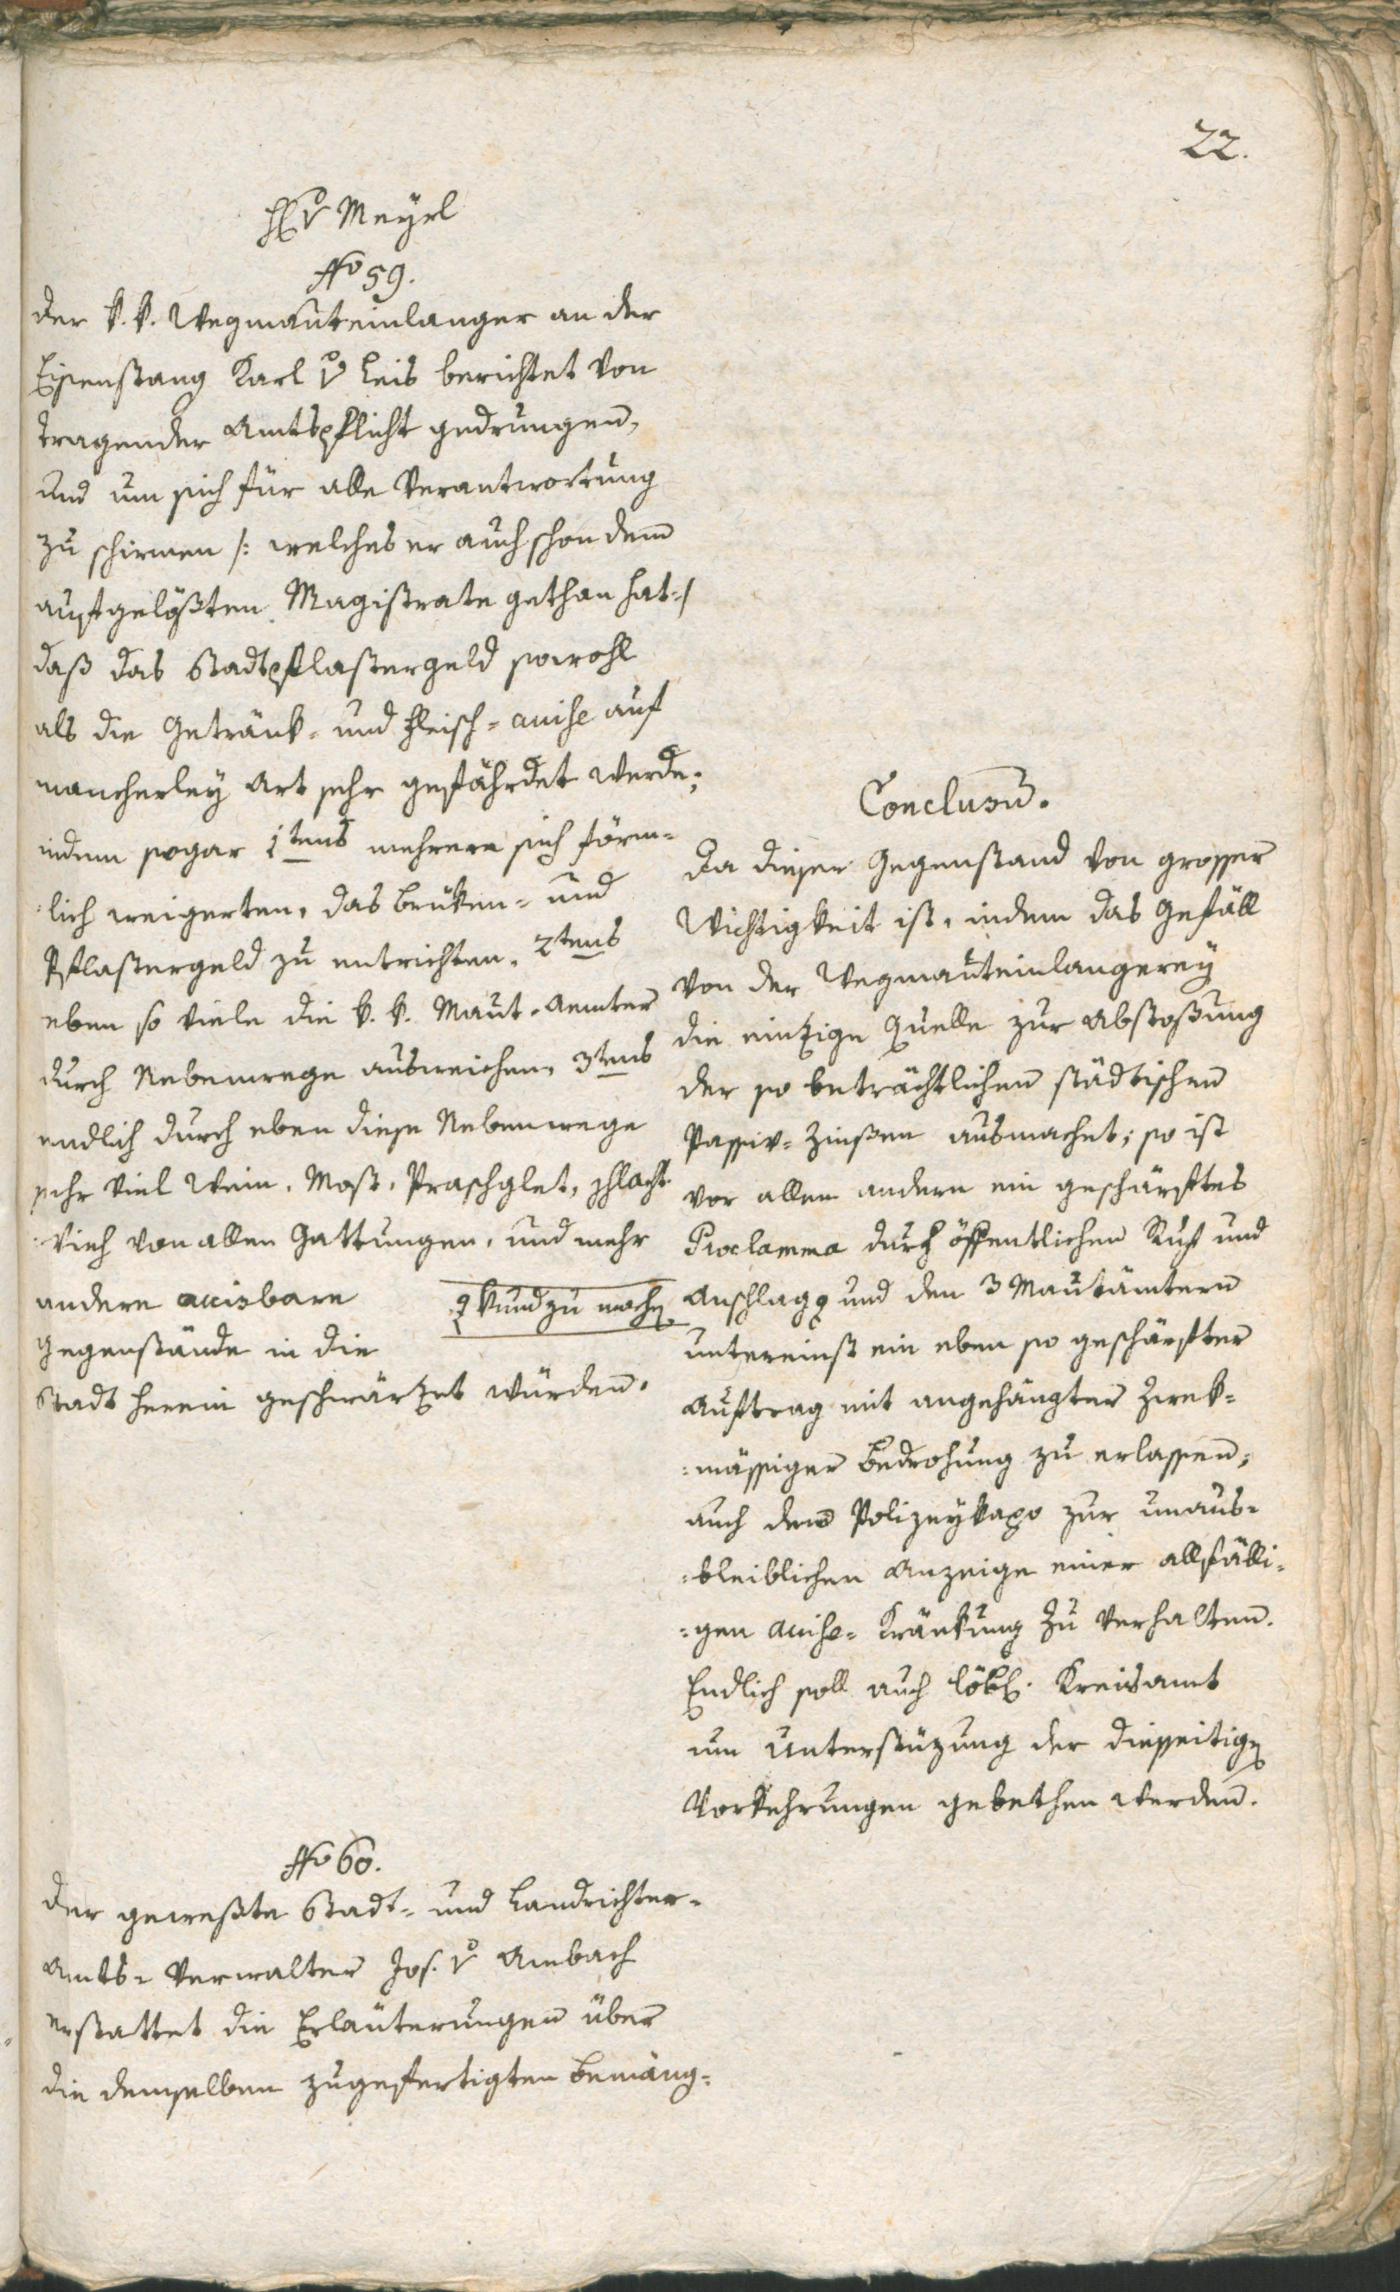 22.
H v Meyrl
No 59.
der k. k. Wegmauteinlanger an der
Eisenstang Karl v Leis berichtet von
tragender Amtspflicht gedrungen,
und um sich für alle Verantwortung
zu schirmen /: welches er auch schon dem
aufgelößten Magistrate gethan hat :/
daß das Stadtpflastergeld sowohl
als die Getränk- und Fleisch-accise auf
mancherley Art sehr gefährdet werde;
indem sogar 1tens mehrere sich förm-
:lich weigerten, das Brüken- und
Pflastergeld zu entrichten. 2tens
eben so viele die k. k. Maut-Aemter
durch Nebenwege ausweichen, 3tens
endlich durch eben diese Nebenwege
sehr viel Wein, Most, Praschglet, schlacht
:vieh von allen Gattungen, und mehr
andere accisbare
Gegenstände in die
Stadt herein geschwärzet würden.
Conclusum.
Da dieser Gegenstand von grosser
Wichtigkeit ist, indem das Gefäll
von der Wegmauteinlangerey
die einzige Quelle zur Abstoßung
der so beträchtlichen städtischen
Passiv-Zinßen ausmachet; so ist
vor allem andern ein geschärftes
Proclamma durch öffentlichen Ruf und
Anschlag und den 3 Mautämtern
kund zu machen
untereinst ein eben so geschärfter
Auftrag mit angehängter Zwek-
:mässiger Bedrohung zu erlassen;
auch dem Polizeykapo zur unaus-
:bleiblichen Anzeige einer allfälli-
:gen accise-Kränkung zu verhalten.
Endlich soll auch löbl. Kreisamt
um Unterstüzung der diesseitigen
Vorkehrungen gebethen werden.
No 60.
der geweßte Stadt- und Landrichter-
Amts-Verwalter Jos. v Ambach
erstattet die Erläuterungen über
die demselben zugefertigten Bemäng-